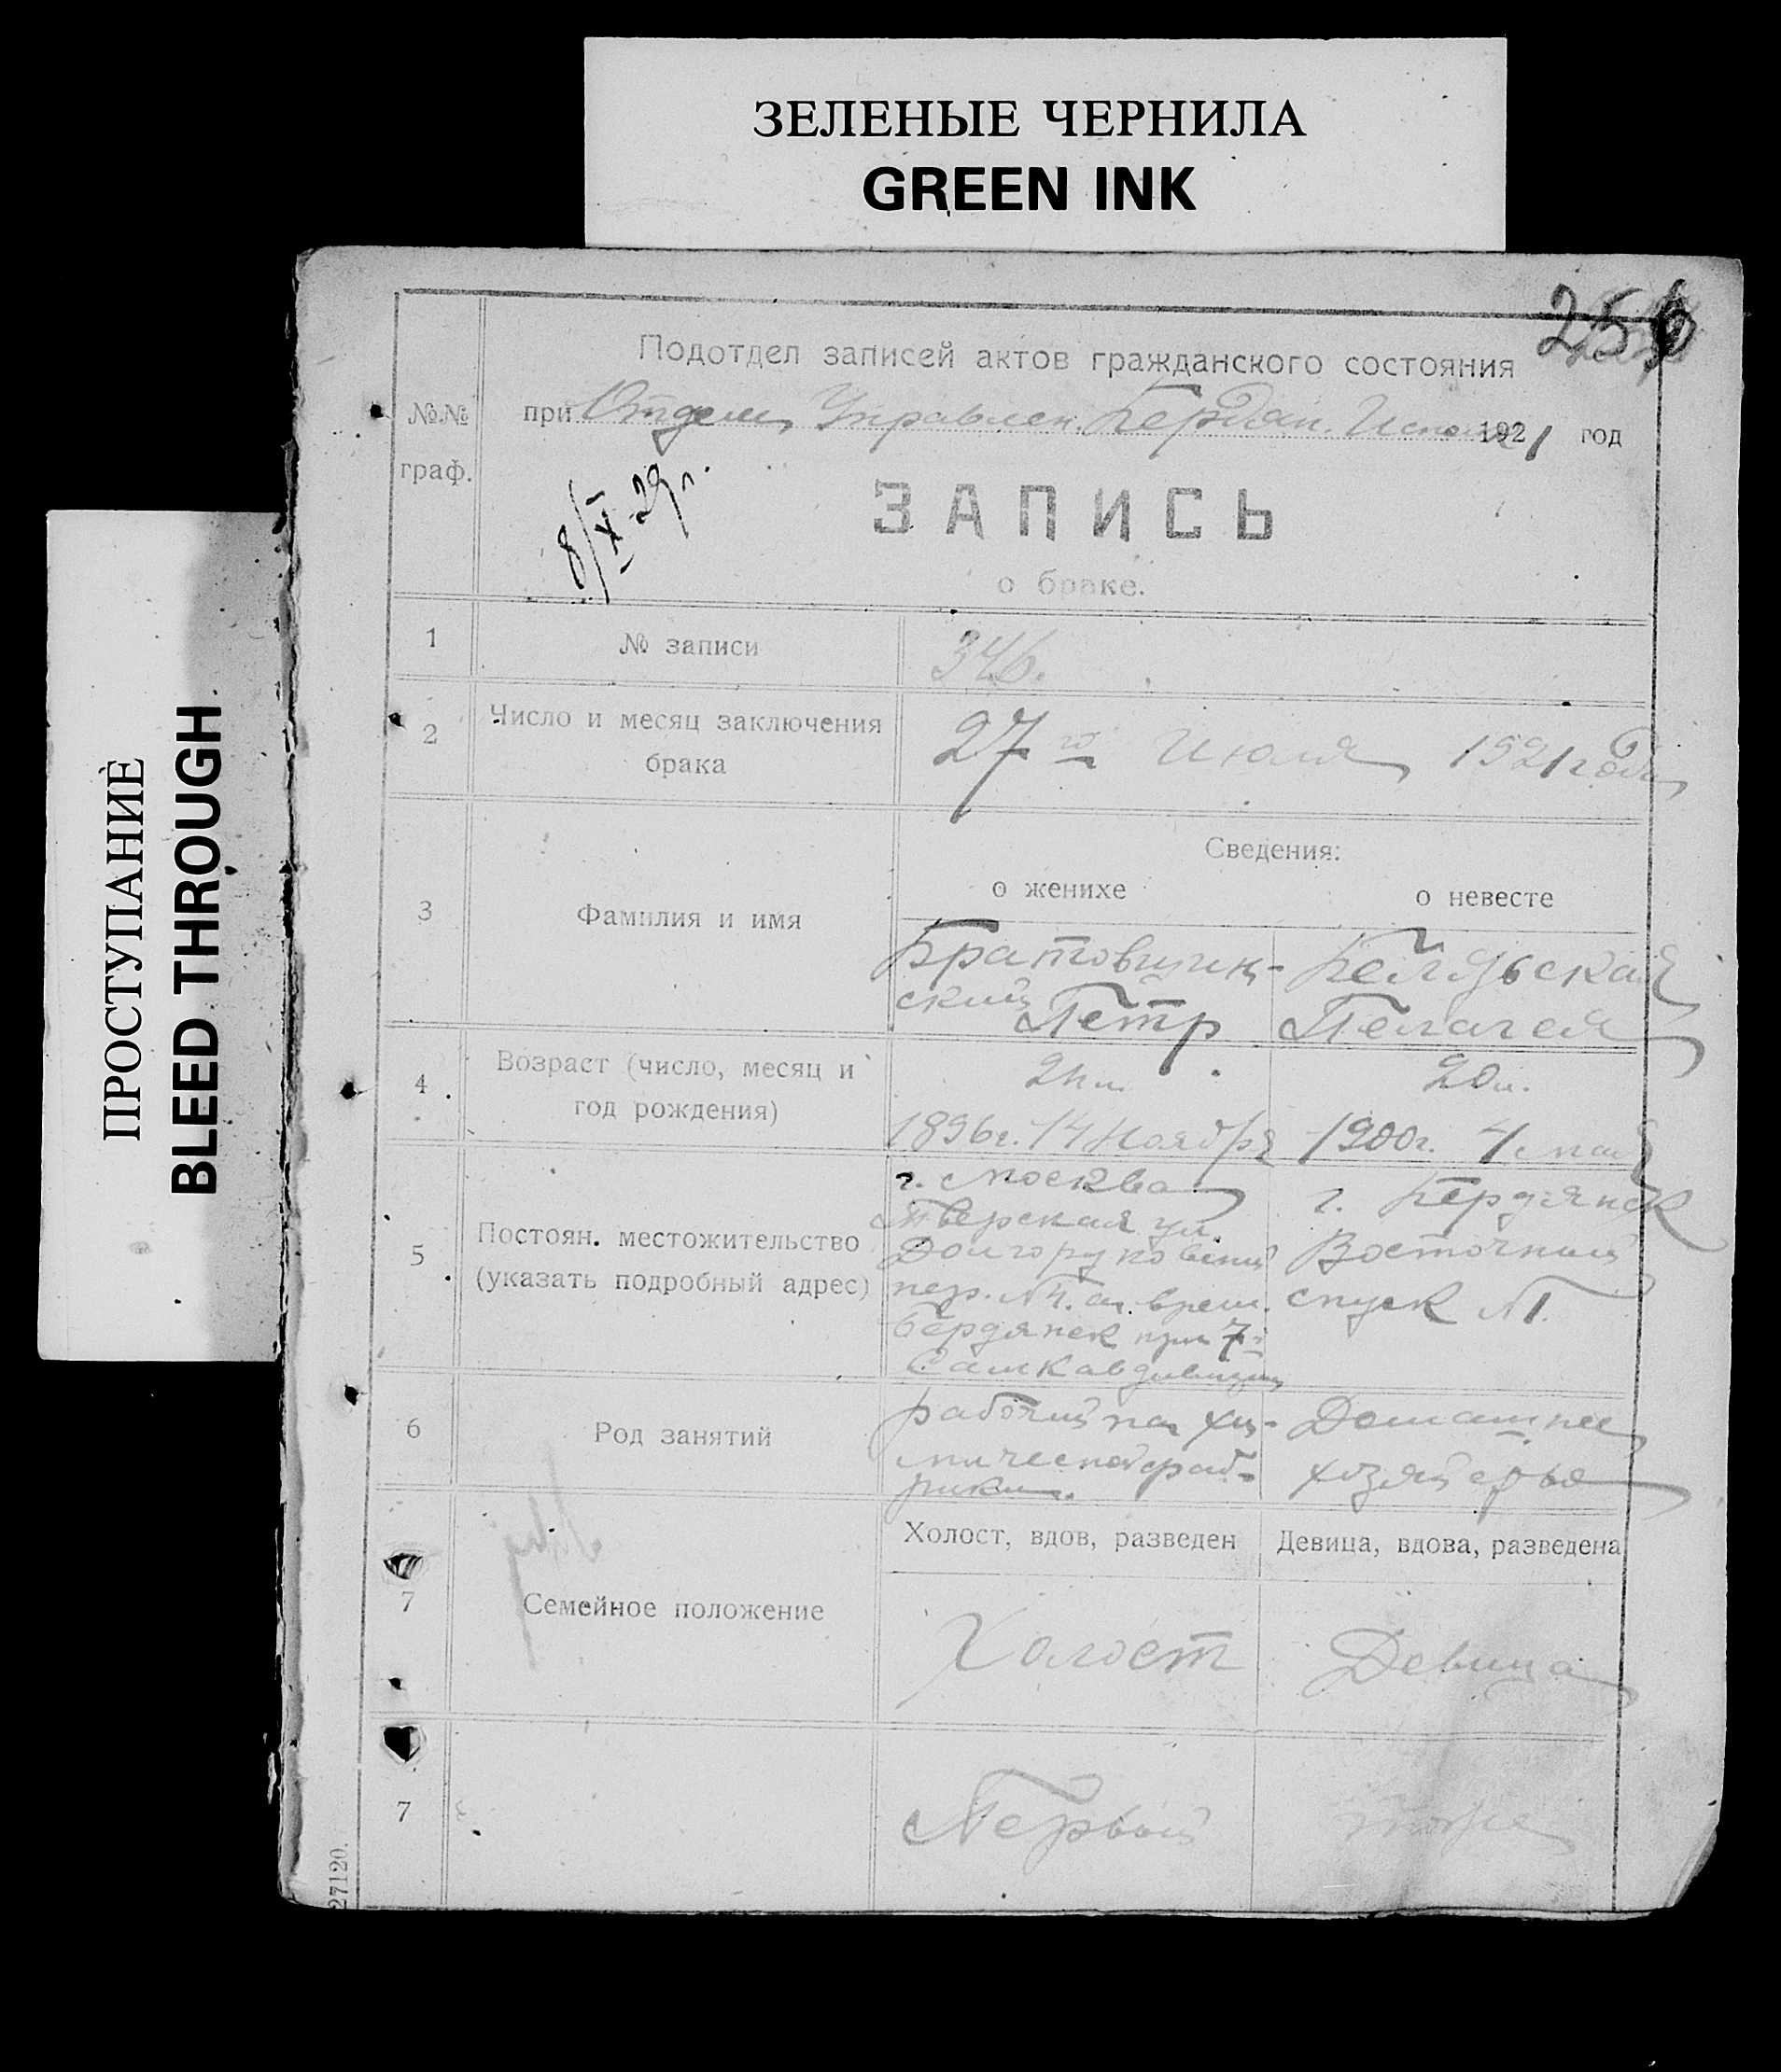 ЗЕЛЕНЫЕ ЧЕРНИЛА
GREEN INK
ПРОСТУПАНИЕ
BLEED THROUGH
256
Подотдел записей актов гражданского состояния
№№ граф.
при Отделе Управлен. Бердян. 1921 год
8/XI-29г.
ЗАПИСЬ
о браке.
1 № записи 346.
2 Число и месяц заключения брака
27го Июля 1921 года
Сведения:
о женихе о невесте
3 Фамилия и имя
Братовщин-
ский Петр
Пелагея
4 Возраст (число, месяц и
год рождения)
24л. 20л.
1896г. 14 Ноября 1900г. 4 мая
5 Постоян. местожительство
(указать подробный адрес)
г. Москва
Тверская ул.
Долгоруковский
пер. врем.
Бердянск при 7й
г. Бердянск
Восточный
спуск №1.
6 Род занятий
рабочий на хи-
мической фаб-
рики.
Домашнее
хозяйство
7 Семейное положение
Холост, вдов, разведен Девица, вдова, разведена
Холост Девица
7 Первый тоже
27120.